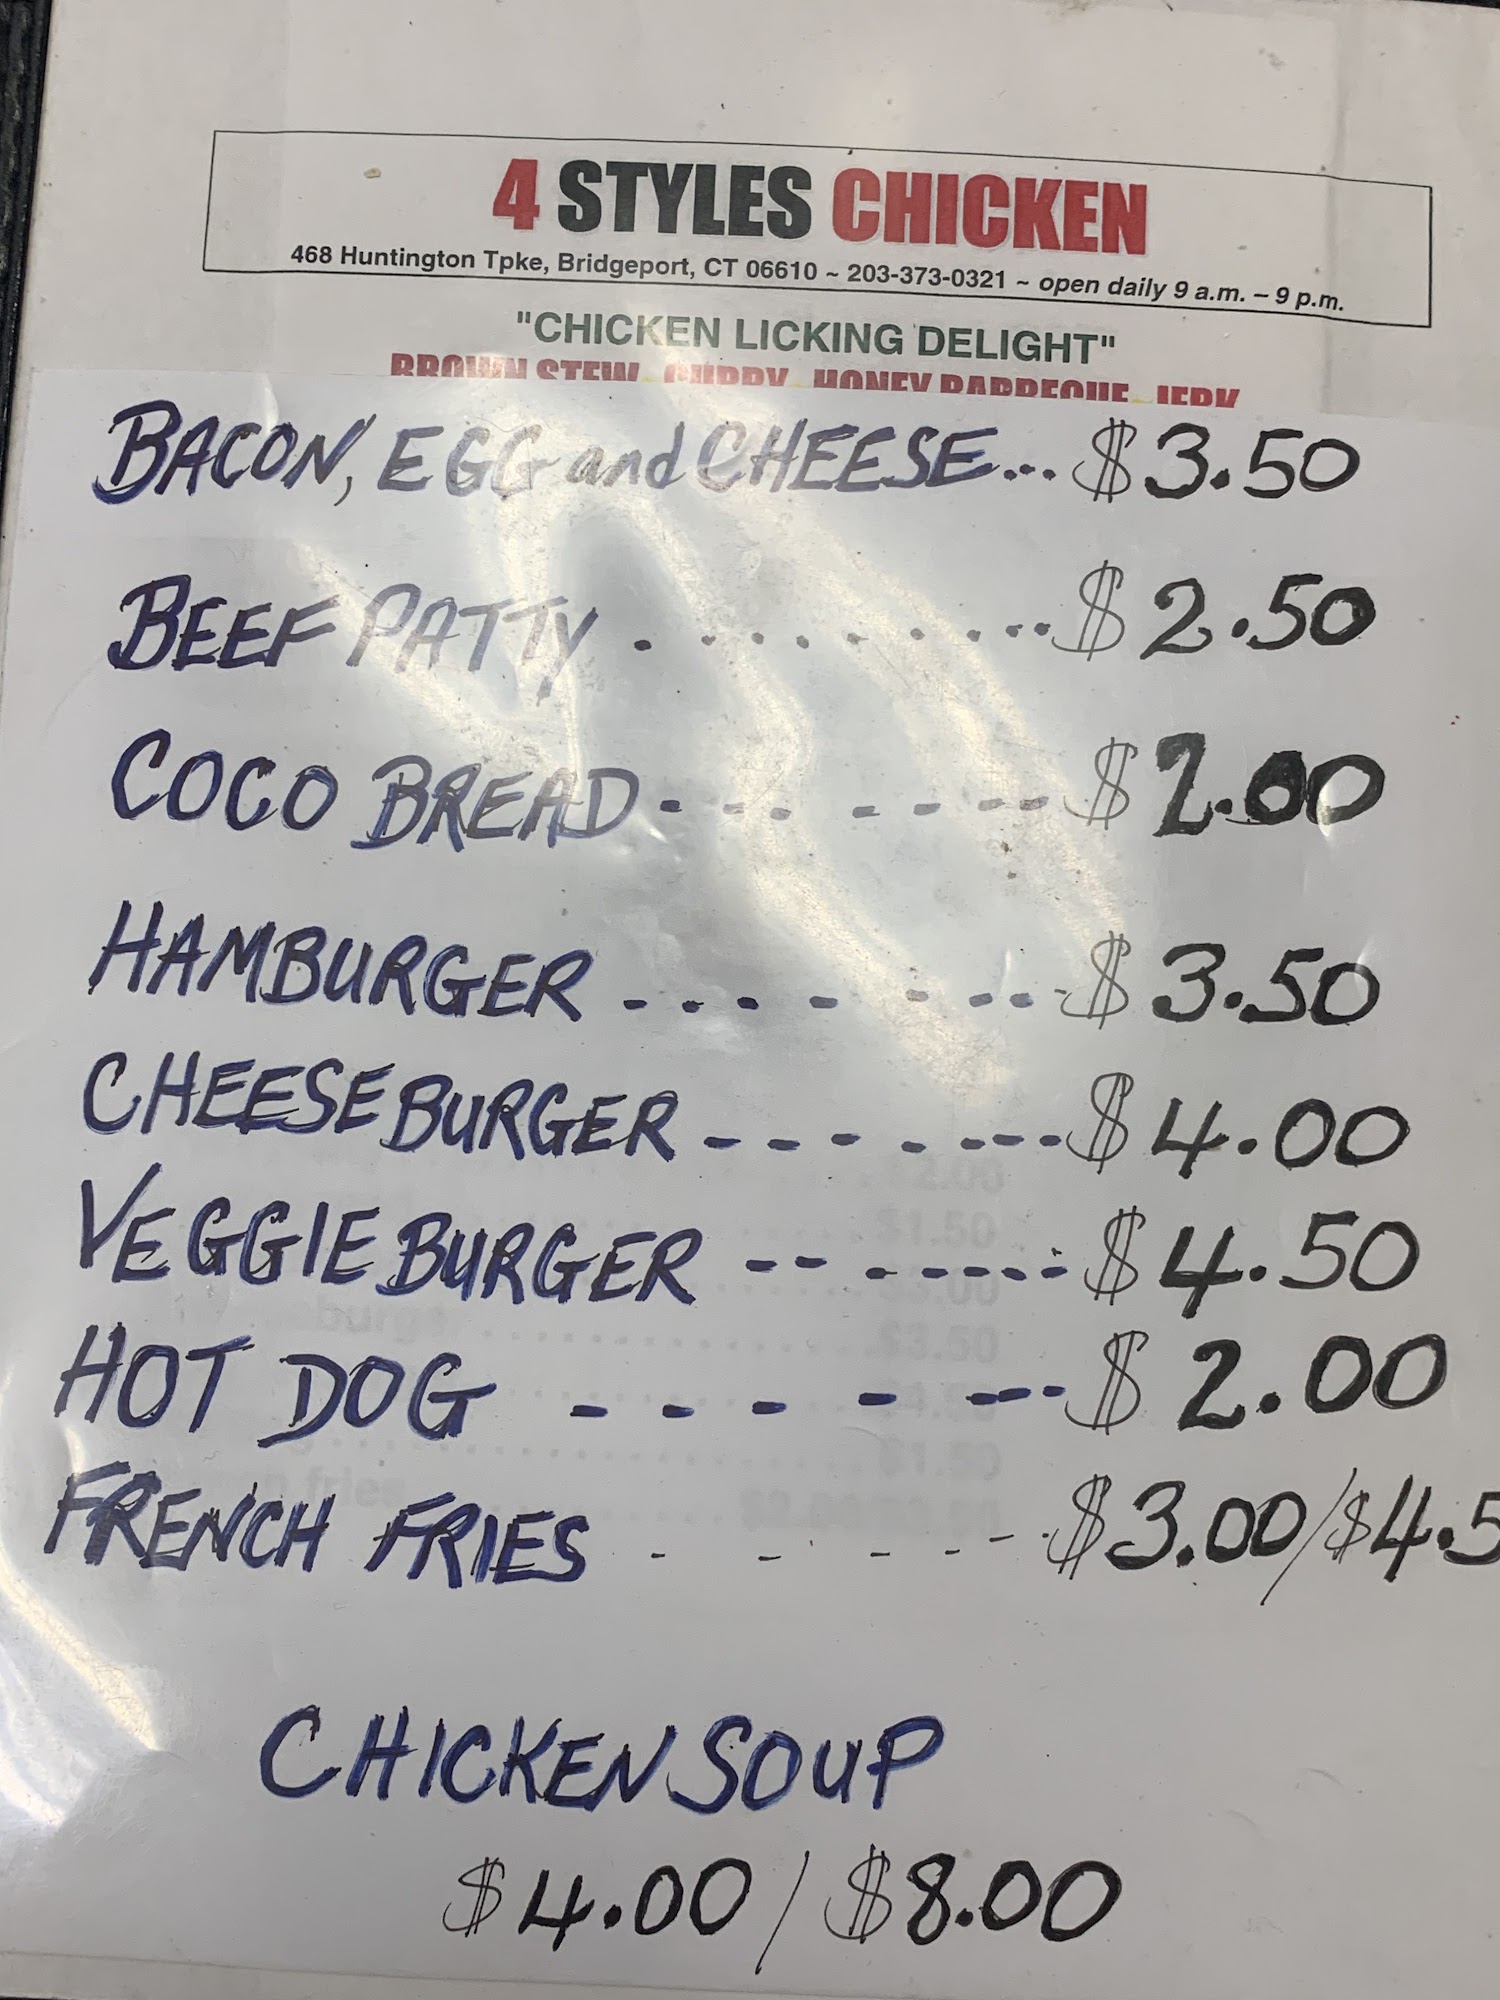 4 STYLES CHICKEN
468 Huntington Tpke, Bridgeport, CT 06610 ~ 203-373-0321 ~ open daily 9 a.m. – 9 p.m.
"CHICKEN LICKING DELIGHT"
BROWN STEW CURRY HONEY BARBEQUE JERK
BACON, EGG and CHEESE... $3.50
BEEF PATTY . . . . . . . . . $2.50
COCO BREAD - - - - - - - $2.00
HAMBURGER . . . - - - - - $3.50
CHEESEBURGER - - - - - - - - $4.00
VEGGIE BURGER - - - - - - - $4.50
HOT DOG - - - - - - - $2.00
FRENCH FRIES - - - - - - $3.00/$4.5
CHICKEN SOUP
$4.00/$8.00